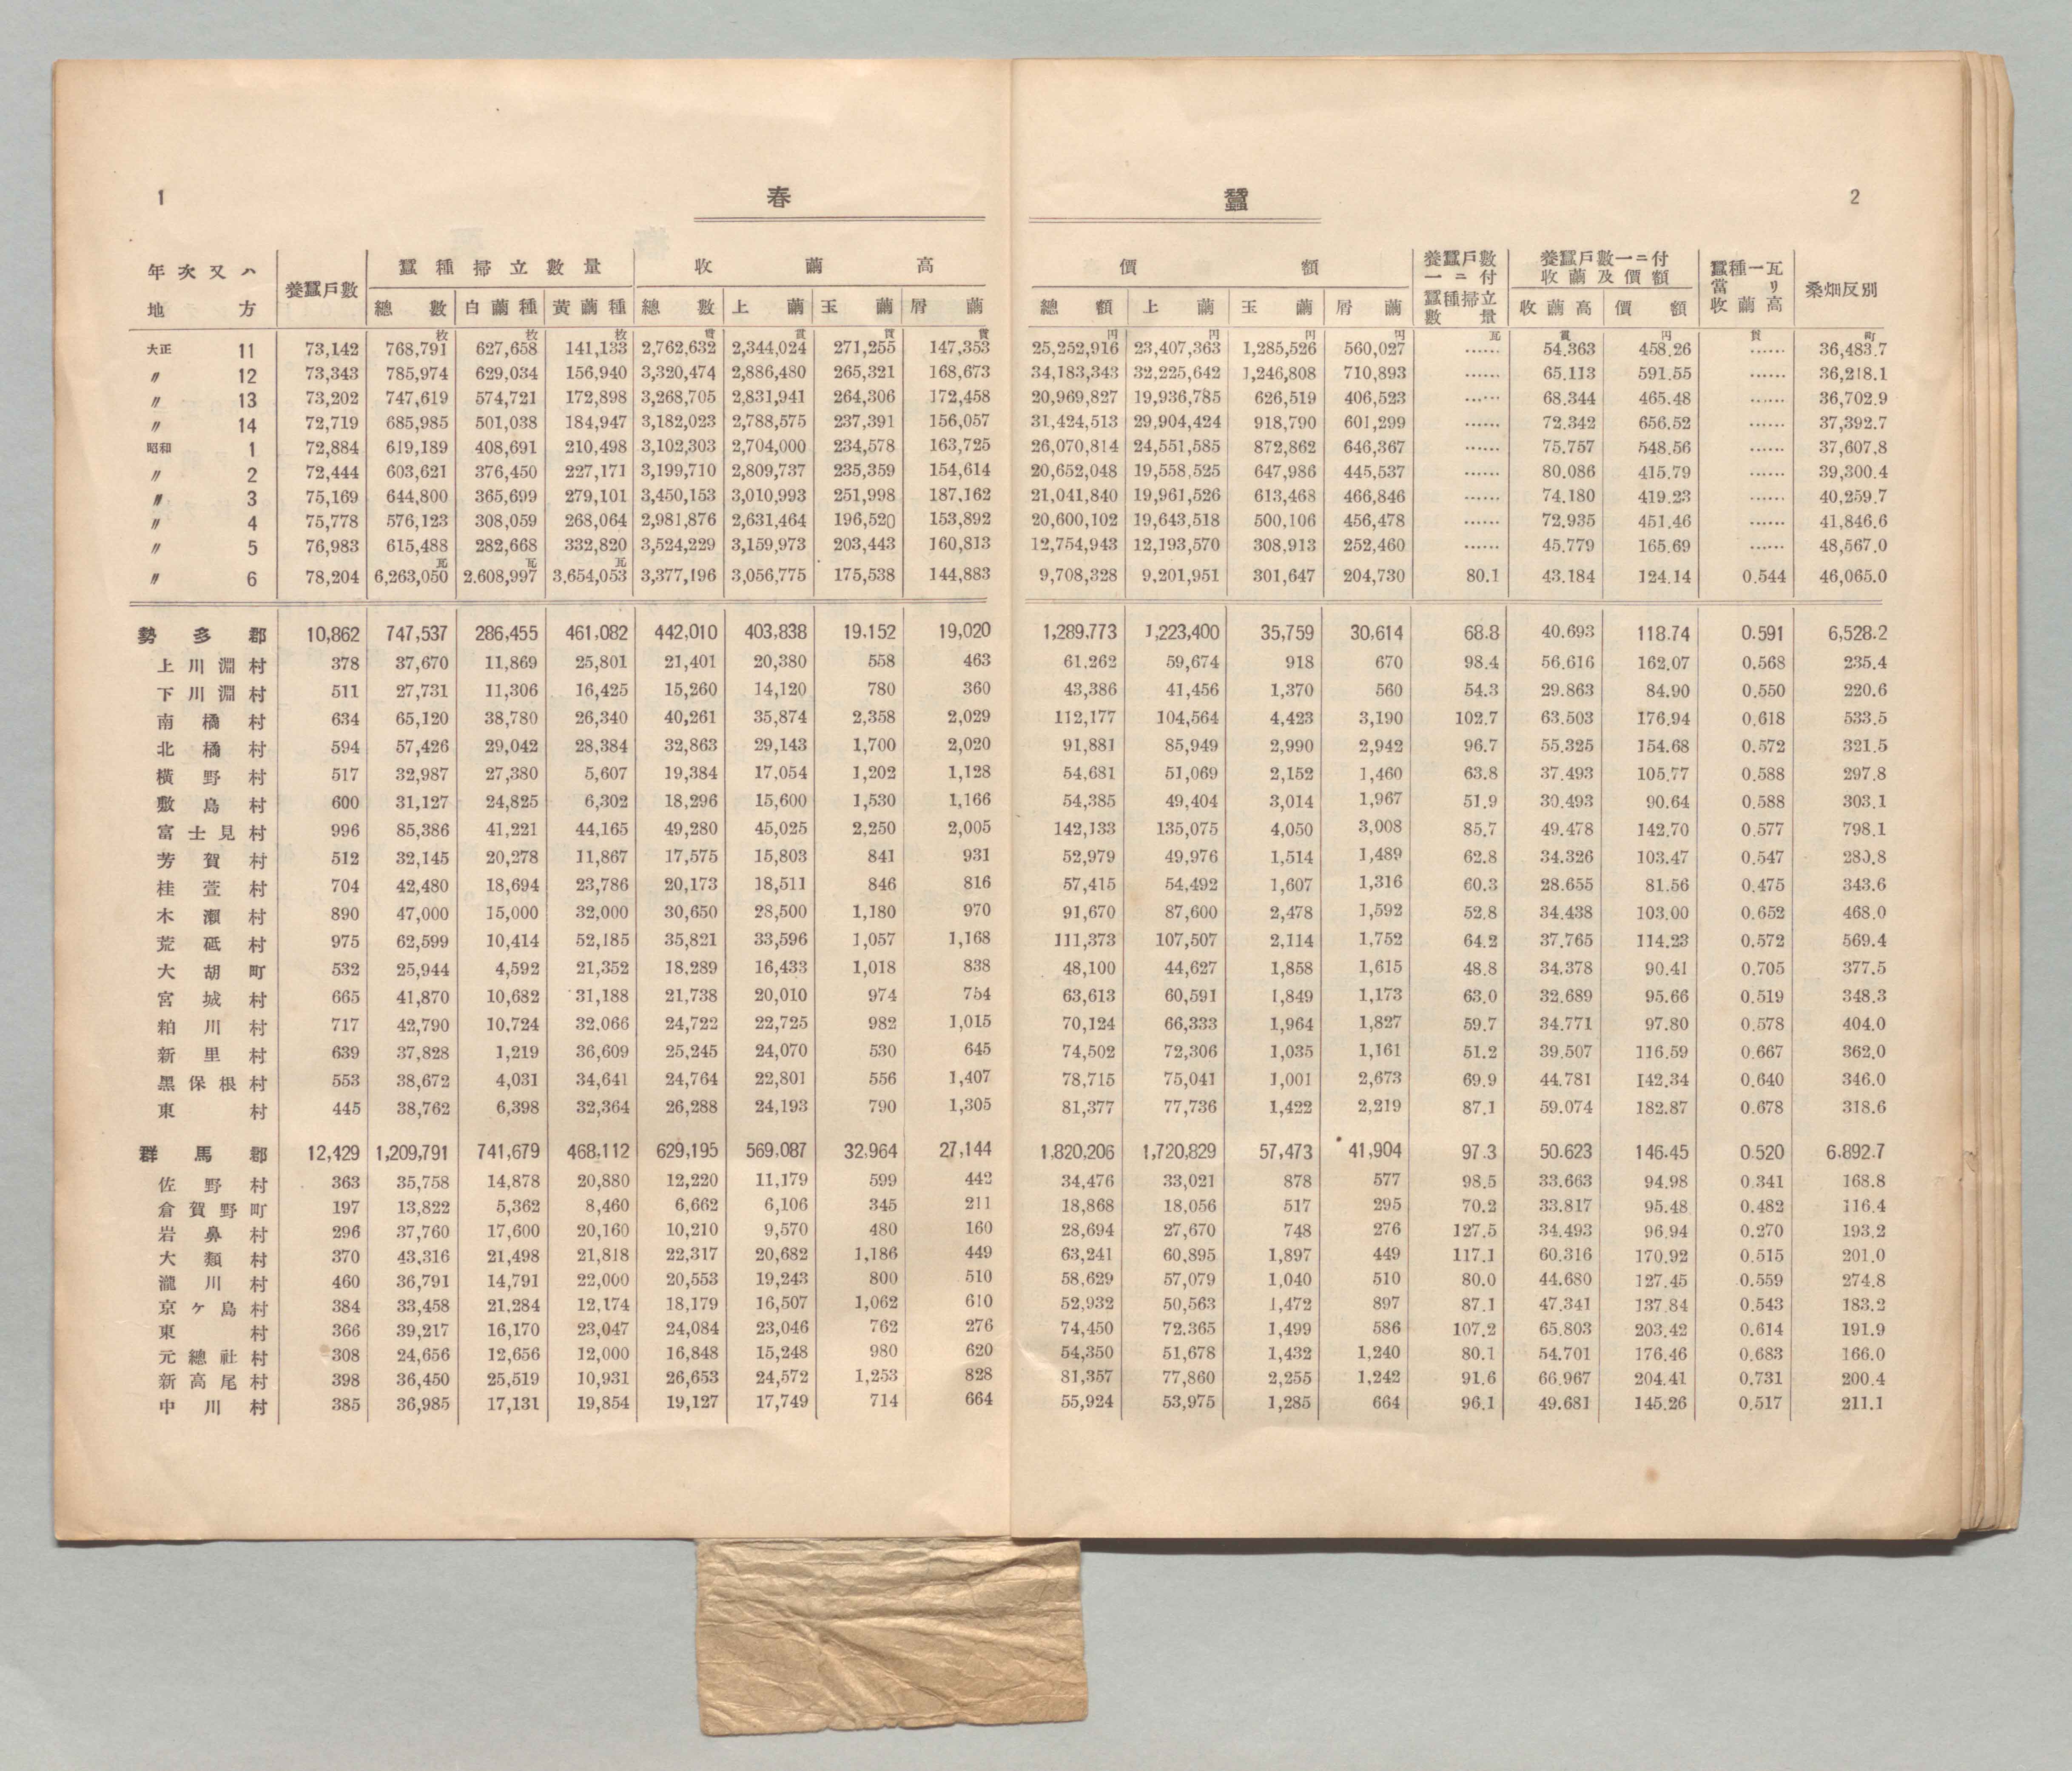 1
春
蠶
2
年次又ハ地方 養蠶戶數 蠶種掃立數量 收繭高 價額 養蠶戶數一ニ付蠶種掃立數量 養蠶戶數一ニ付收繭及價額 蠶種一瓦當リ收繭高 桑畑反別
總數 白繭種 黃繭種 總數 上繭 玉繭 屑繭 總額 上繭 玉繭 屑繭 收繭高 價額
枚 枚 枚 貫 貫 貫 貫 円 円 円 円 瓦 貫 円 貫 町
大正 11 73,142 768,791 627,658 141,133 2,762,632 2,344,024 271,255 147,353 25,252,916 23,407,363 1,285,526 560,027 …… 54.363 458.26 …… 36,483.7
〃 12 73,343 785,974 629,034 156,940 3,320,474 2,886,480 265,321 168,673 34,183,343 32,225,642 1,246,808 710,893 …… 65.113 591.55 …… 36,218.1
〃 13 73,202 747,619 574,721 172,898 3,268,705 2,831,941 264,306 172,458 20,969,827 19,936,785 626,519 406,523 …… 68.344 465.48 …… 36,702.9
〃 14 72,719 685,985 501,038 184,947 3,182,023 2,788,575 237,391 156,057 31,424,513 29,904,424 918,790 601,299 …… 72.342 656.52 …… 37,392.7
昭和 1 72,884 619,189 408,691 210,498 3,102,303 2,704,000 234,578 163,725 26,070,814 24,551,585 872,862 646,367 …… 75.757 548.56 …… 37,607.8
〃 2 72,444 603,621 376,450 227,171 3,199,710 2,809,737 235,359 154,614 20,652,048 19,558,525 647,986 445,537 …… 80.086 415.79 …… 39,300.4
〃 3 75,169 644,800 365,699 279,101 3,450,153 3,010,993 251,998 187,162 21,041,840 19,961,526 613,468 466,846 …… 74.180 419.23 …… 40,259.7
〃 4 75,778 576,123 308,059 268,064 2,981,876 2,631,464 196,520 153,892 20,600,102 19,643,518 500,106 456,478 …… 72.935 451.46 …… 41,846.6
〃 5 76,983 615,488 282,668 332,820 3,524,229 3,159,973 203,443 160,813 12,754,943 12,193,570 308,913 252,460 …… 45.779 165.69 …… 48,567.0
瓦 瓦 瓦
〃 6 78,204 6,263,050 2,608,997 3,654,053 3,377,196 3,056,775 175,538 144,883 9,708,328 9,201,951 301,647 204,730 80.1 43.184 124.14 0.544 46,065.0
勢多郡 10,862 747,537 286,455 461,082 442,010 403,838 19,152 19,020 1,289,773 1,223,400 35,759 30,614 68.8 40.693 118.74 0.591 6,528.2
上川淵村 378 37,670 11,869 25,801 21,401 20,380 558 463 61,262 59,674 918 670 98.4 56.616 162.07 0.568 235.4
下川淵村 511 27,731 11,306 16,425 15,260 14,120 780 360 43,386 41,456 1,370 560 54.3 29.863 84.90 0.550 220.6
南橘村 634 65,120 38,780 26,340 40,261 35,874 2,358 2,029 112,177 104,564 4,423 3,190 102.7 63.503 176.94 0.618 533.5
北橘村 594 57,426 29,042 28,384 32,863 29,143 1,700 2,020 91,881 85,949 2,990 2,942 96.7 55.325 154.68 0.572 321.5
橫野村 517 32,987 27,380 5,607 19,384 17,054 1,202 1,128 54,681 51,069 2,152 1,460 63.8 37.493 105.77 0.588 297.8
敷島村 600 31,127 24,825 6,302 18,296 15,600 1,530 1,166 54,385 49,404 3,014 1,967 51.9 30.493 90.64 0.588 303.1
富士見村 996 85,386 41,221 44,165 49,280 45,025 2,250 2,005 142,133 135,075 4,050 3,008 85.7 49.478 142.70 0.577 798.1
芳賀村 512 32,145 20,278 11,867 17,575 15,803 841 931 52,979 49,976 1,514 1,489 62.8 34.326 103.47 0.547 280.8
桂萱村 704 42,480 18,694 23,786 20,173 18,511 846 816 57,415 54,492 1,607 1,316 60.3 28.655 81.56 0.475 343.6
木瀨村 890 47,000 15,000 32,000 30,650 28,500 1,180 970 91,670 87,600 2,478 1,592 52.8 34.438 103.00 0.652 468.0
荒砥村 975 62,599 10,414 52,185 35,821 33,596 1,057 1,168 111,373 107,507 2,114 1,752 64.2 37.765 114.23 0.572 569.4
大胡町 532 25,944 4,592 21,352 18,289 16,433 1,018 838 48,100 44,627 1,858 1,615 48.8 34.378 90.41 0.705 377.5
宮城村 665 41,870 10,682 31,188 21,738 20,010 974 754 63,613 60,591 1,849 1,173 63.0 32.689 95.66 0.519 348.3
粕川村 717 42,790 10,724 32,066 24,722 22,725 982 1,015 70,124 66,333 1,964 1,827 59.7 34.771 97.80 0.578 404.0
新里村 639 37,828 1,219 36,609 25,245 24,070 530 645 74,502 72,306 1,035 1,161 51.2 39.507 116.59 0.667 362.0
黑保根村 553 38,672 4,031 34,641 24,764 22,801 556 1,407 78,715 75,041 1,001 2,673 69.9 44.781 142.34 0.640 346.0
東村 445 38,762 6,398 32,364 26,288 24,193 790 1,305 81,377 77,736 1,422 2,219 87.1 59.074 182.87 0.678 318.6
群馬郡 12,429 1,209,791 741,679 468,112 629,195 569,087 32,964 27,144 1,820,206 1,720,829 57,473 41,904 97.3 50.623 146.45 0.520 6,892.7
佐野村 363 35,758 14,878 20,880 12,220 11,179 599 442 34,476 33,021 878 577 98.5 33.663 94.98 0.341 168.8
倉賀野町 197 13,822 5,362 8,460 6,662 6,106 345 211 18,868 18,056 517 295 70.2 33.817 95.48 0.482 116.4
岩鼻村 296 37,760 17,600 20,160 10,210 9,570 480 160 28,694 27,670 748 276 127.5 34.493 96.94 0.270 193.2
大類村 370 43,316 21,498 21,818 22,317 20,682 1,186 449 63,241 60,895 1,897 449 117.1 60.316 170.92 0.515 201.0
瀧川村 460 36,791 14,791 22,000 20,553 19,243 800 510 58,629 57,079 1,040 510 80.0 44.680 127.45 0.559 274.8
京ケ島村 384 33,458 21,284 12,174 18,179 16,507 1,062 610 52,932 50,563 1,472 897 87.1 47.341 137.84 0.543 183.2
東村 366 39,217 16,170 23,047 24,084 23,046 762 276 74,450 72,365 1,499 586 107.2 65.803 203.42 0.614 191.9
元總社村 308 24,656 12,656 12,000 16,848 15,248 980 620 54,350 51,678 1,432 1,240 80.1 54.701 176.46 0.683 166.0
新高尾村 398 36,450 25,519 10,931 26,653 24,572 1,253 828 81,357 77,860 2,255 1,242 91.6 66.967 204.41 0.731 200.4
中川村 385 36,985 17,131 19,854 19,127 17,749 714 664 55,924 53,975 1,285 664 96.1 49.681 145.26 0.517 211.1